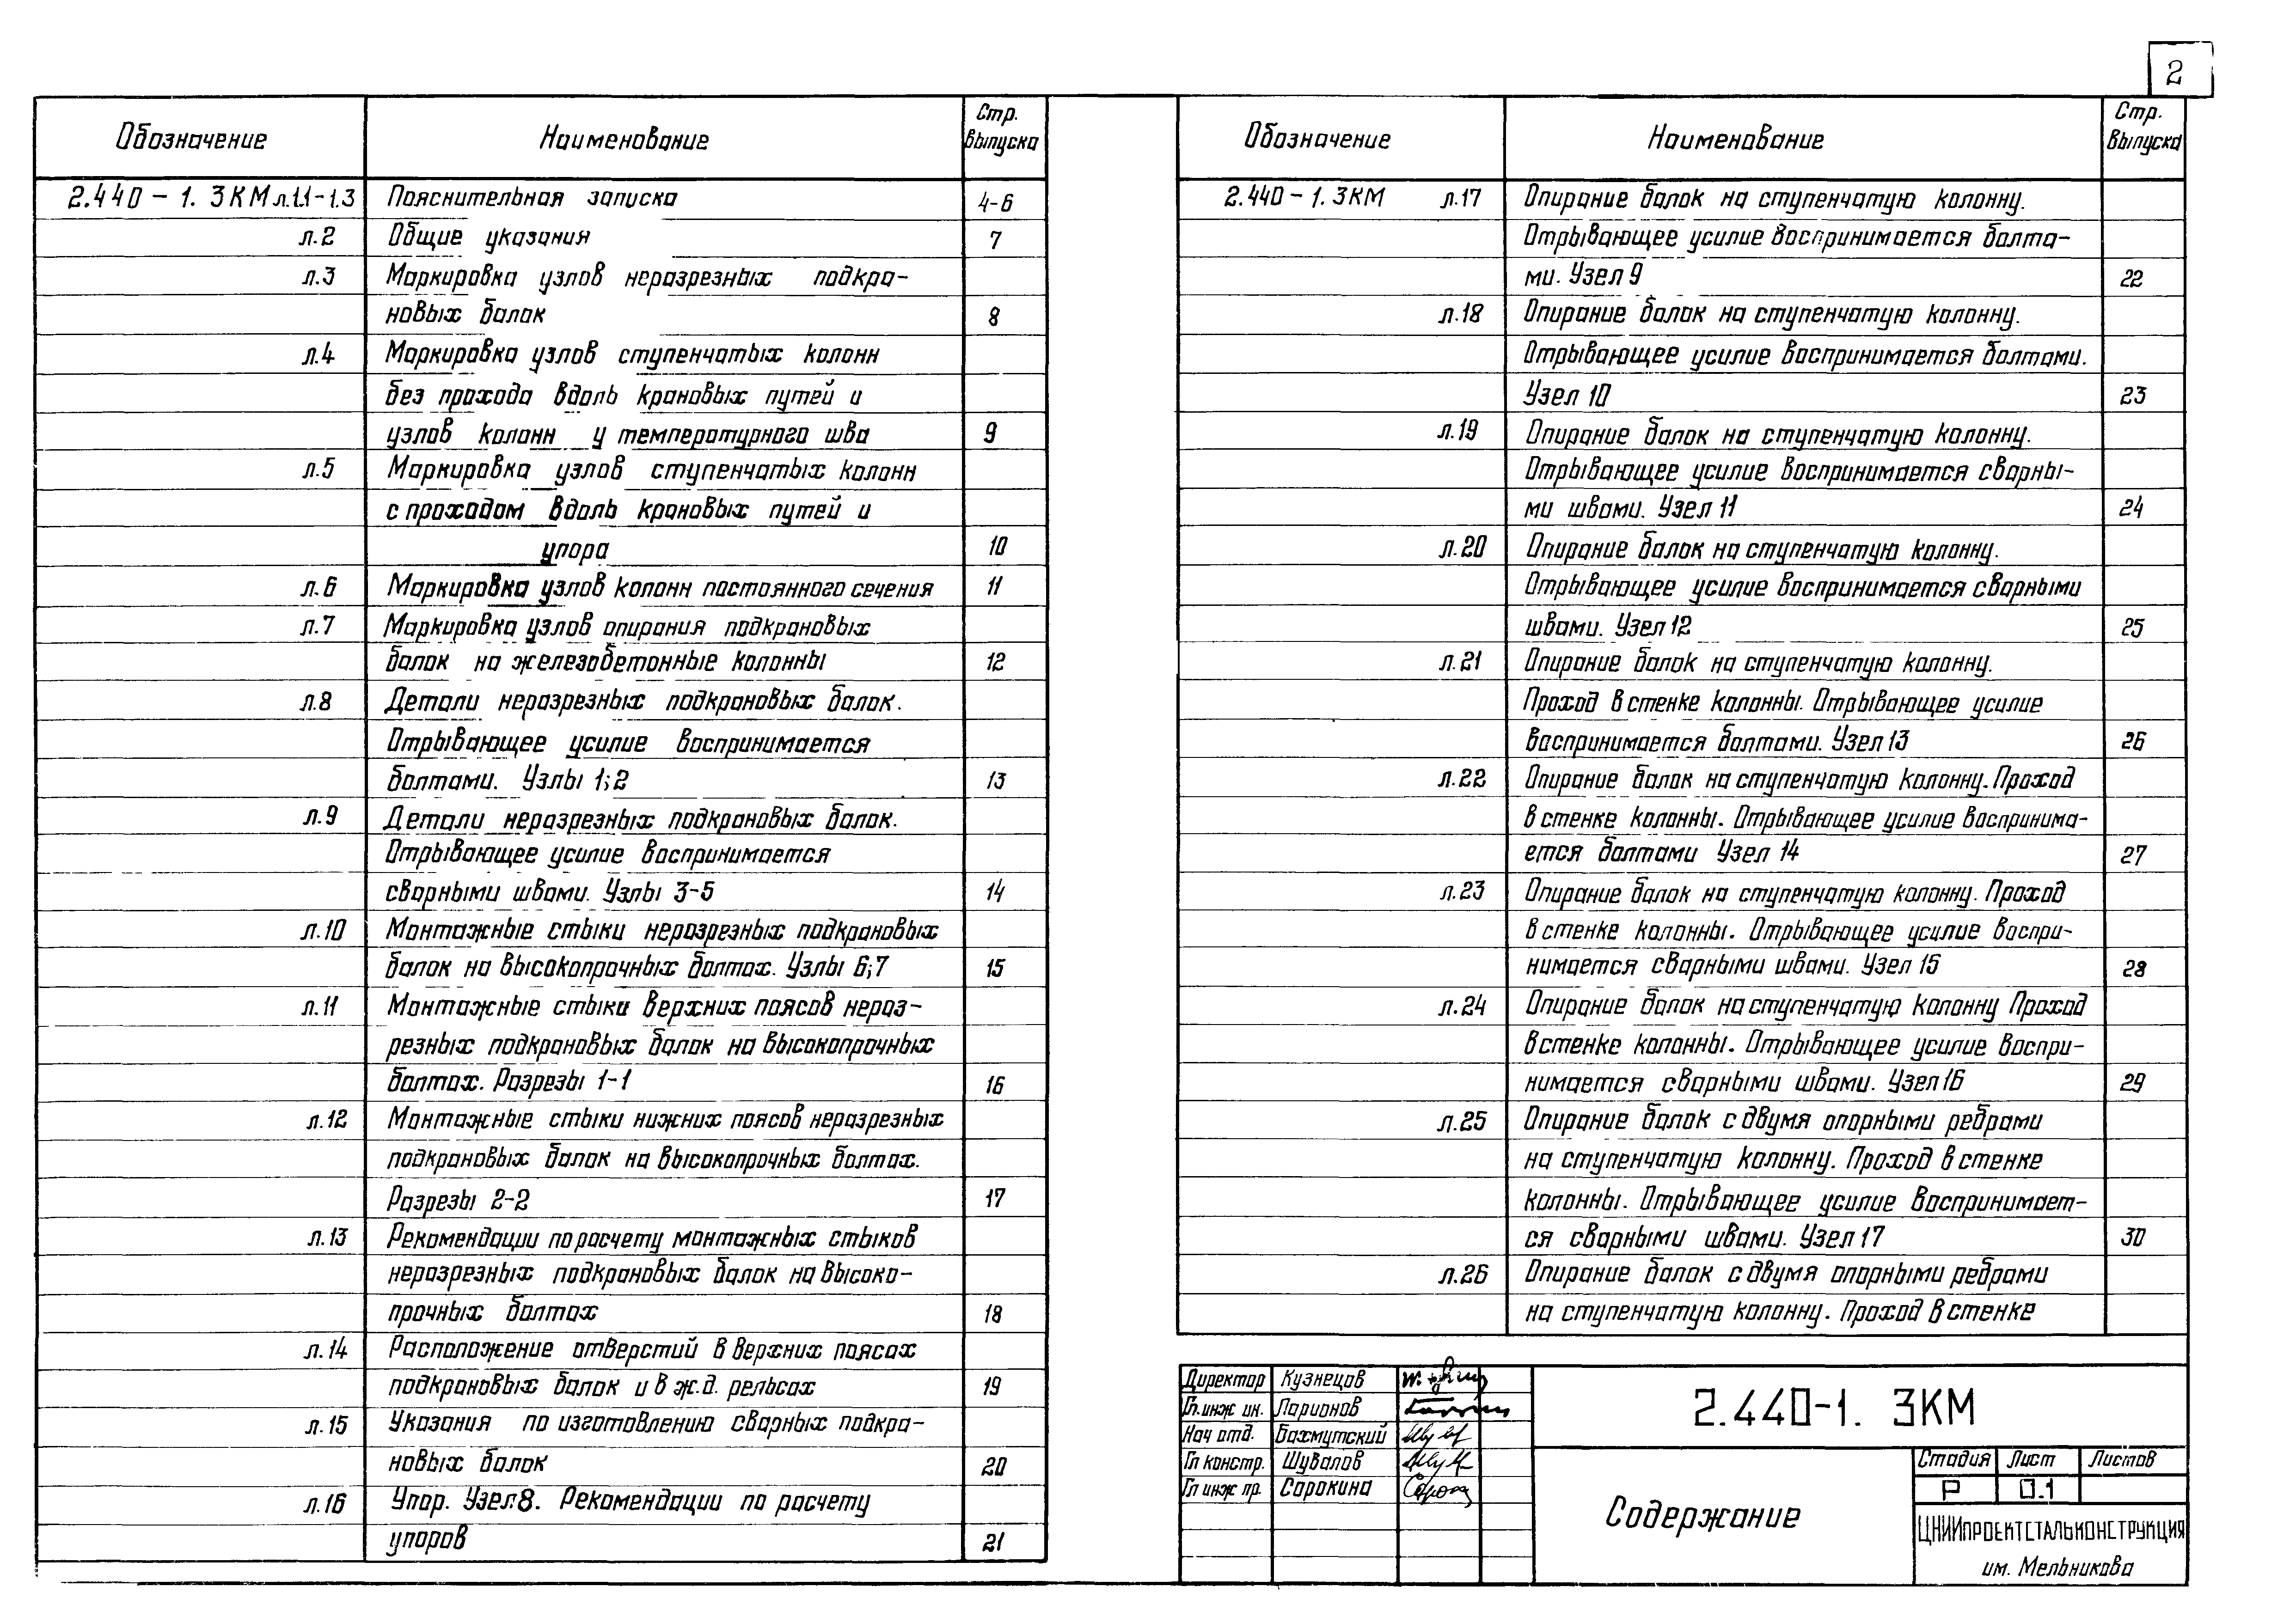 2
Обозначение Наименование Стр. выпуска
2.440-1. 3КМ л.1.1-1.3 Пояснительная записка 4-6
л.2 Общие указания 7
л.3 Маркировка узлов неразрезных подкра-
новых балок 8
л.4 Маркировка узлов ступенчатых колонн
без прохода вдоль крановых путей и
узлов колонн у температурного шва 9
л.5 Маркировка узлов ступенчатых колонн
с проходом вдоль крановых путей и
упора 10
л.6 Маркировка узлов колонн постоянного сечения 11
л.7 Маркировка узлов опирания подкрановых
балок на железобетонные колонны 12
л.8 Детали неразрезных подкрановых балок.
Отрывающее усилие воспринимается
болтами. Узлы 1;2 13
л.9 Детали неразрезных подкрановых балок.
Отрывающее усилие воспринимается
сварными швами. Узлы 3-5 14
л.10 Монтажные стыки неразрезных подкрановых
балок на высокопрочных болтах. Узлы 6;7 15
л.11 Монтажные стыки верхних поясов нераз-
резных подкрановых балок на высокопрочных
болтах. Разрезы 1-1 16
л.12 Монтажные стыки нижних поясов неразрезных
подкрановых балок на высокопрочных болтах.
Разрезы 2-2 17
л.13 Рекомендации по расчету монтажных стыков
неразрезных подкрановых балок на высоко-
прочных болтах 18
л.14 Расположение отверстий в верхних поясах
подкрановых балок и в ж.д. рельсах 19
л.15 Указания по изготовлению сварных подкра-
новых балок 20
л.16 Упор. Узел 8. Рекомендации по расчету
упоров 21
Обозначение Наименование Стр. выпуска
2.440-1. 3КМ л.17 Опирание балок на ступенчатую колонну.
Отрывающее усилие воспринимается болта-
ми. Узел 9 22
л.18 Опирание балок на ступенчатую колонну.
Отрывающее усилие воспринимается болтами.
Узел 10 23
л.19 Опирание балок на ступенчатую колонну.
Отрывающее усилие воспринимается сварны-
ми швами. Узел 11 24
л.20 Опирание балок на ступенчатую колонну.
Отрывающее усилие воспринимается сварными
швами. Узел 12 25
л.21 Опирание балок на ступенчатую колонну.
Проход в стенке колонны. Отрывающее усилие
воспринимается болтами. Узел 13 26
л.22 Опирание балок на ступенчатую колонну. Проход
в стенке колонны. Отрывающее усилие воспринима-
ется болтами Узел 14 27
л.23 Опирание балок на ступенчатую колонну. Проход
в стенке колонны. Отрывающее усилие воспри-
нимается сварными швами. Узел 15 28
л.24 Опирание балок на ступенчатую колонну Проход
в стенке колонны. Отрывающее усилие воспри-
нимается сварными швами. Узел 16 29
л.25 Опирание балок с двумя опорными ребрами
на ступенчатую колонну. Проход в стенке
колонны. Отрывающее усилие воспринимает-
ся сварными швами. Узел 17 30
л.26 Опирание балок с двумя опорными ребрами
на ступенчатую колонну. Проход в стенке
Директор Кузнецов
Гл. инж ин. Ларионов
Нач отд. Бахмутский
Гл констр. Шувалов
Гл инж пр. Сорокина
2.440-1. 3КМ
Содержание
Стадия Лист Листов
Р 0.1
ЦНИИПРОЕКТСТАЛЬКОНСТРУКЦИЯ
им. Мельникова